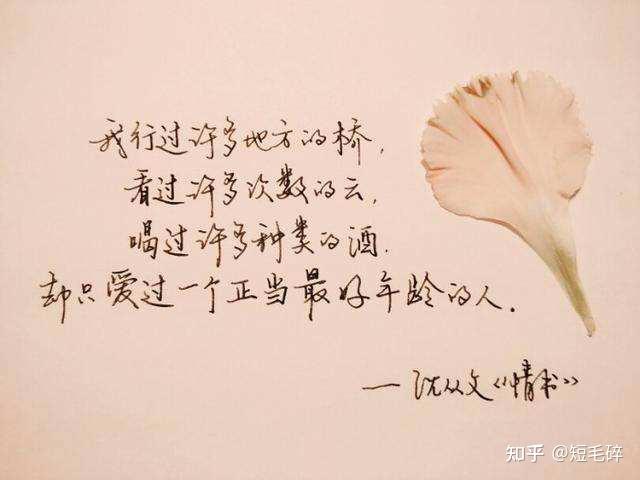 我行过许多地方的桥，
看过许多次数的云，
喝过许多种类的酒.
却只爱过一个正当最好年龄的人．
—沈从文《情书》
知乎 @短毛碎